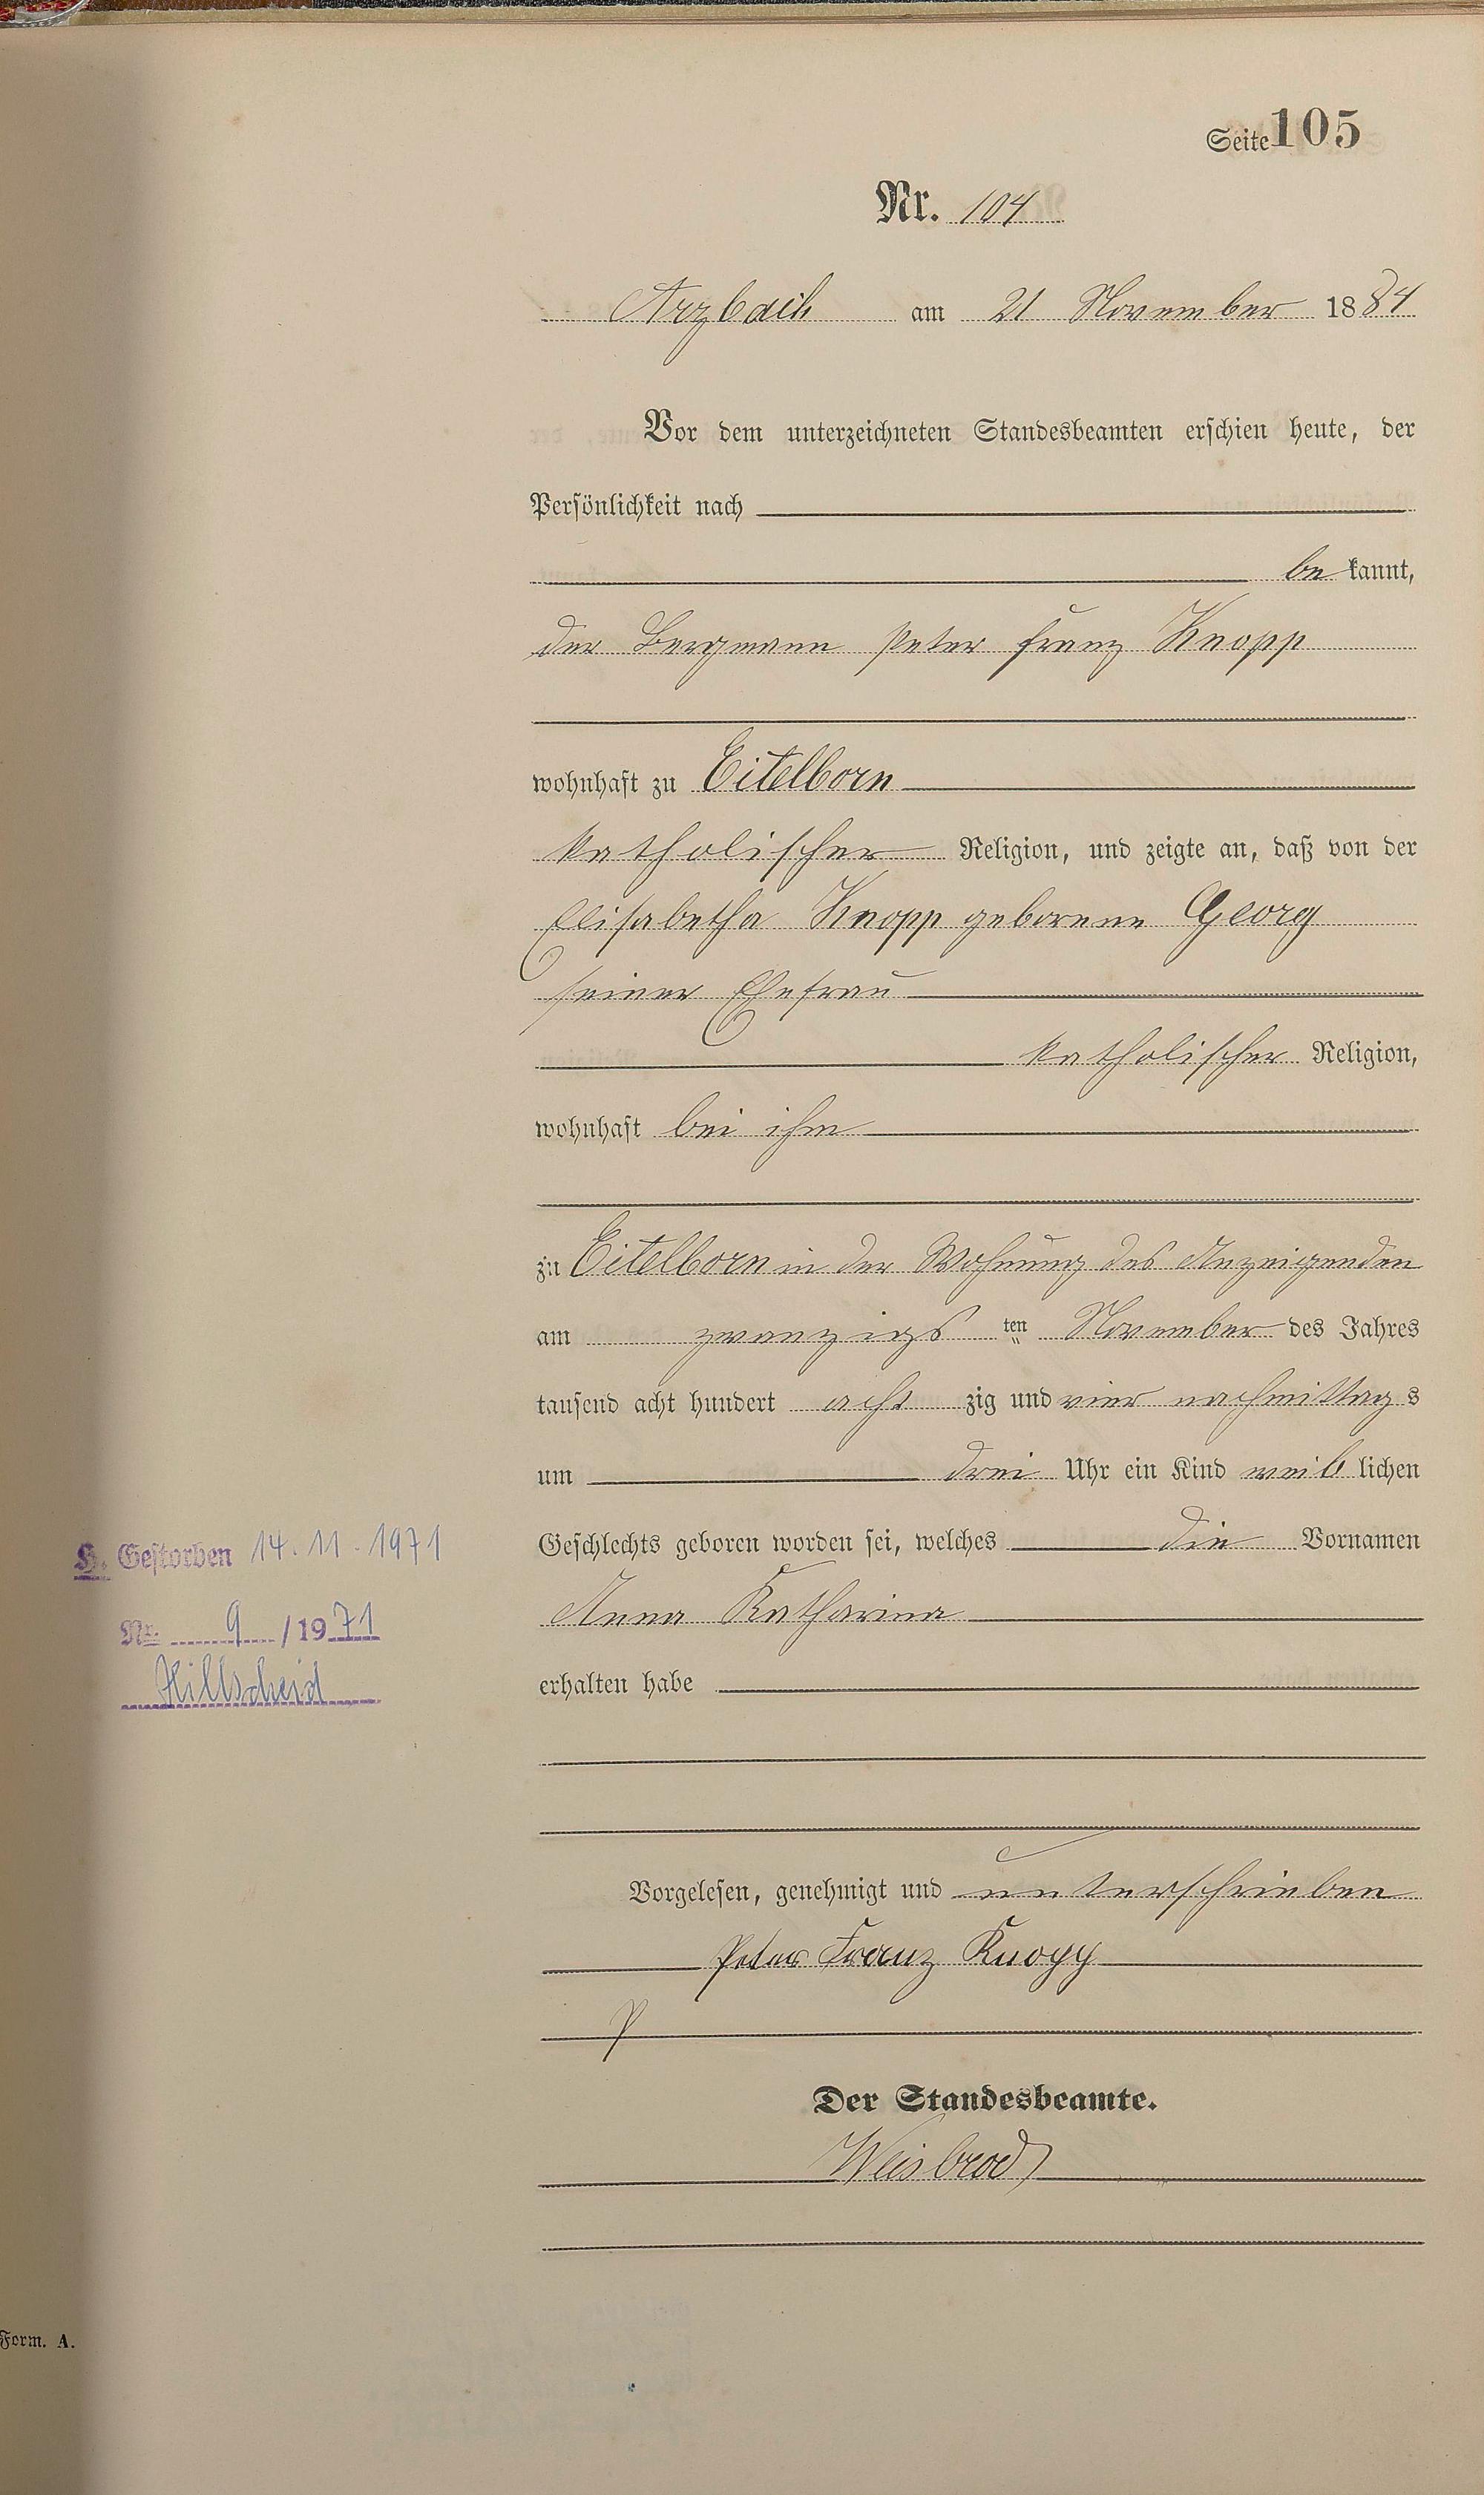 Seite 105
Nr. 104
Arzbach am 21 November 1884
Vor dem unterzeichneten Standesbeamten erschien heute, der
Persönlichkeit nach
be kannt,
der Bergmann Peter Franz Knopp
wohnhaft zu Eitelborn
katholischer Religion, und zeigte an, daß von der
Elisabetha Knopp geborene Georg
seiner Ehefrau
katholischer Religion,
wohnhaft bei ihm
zu Eitelborn in der Wohnung des Anzeigenden
am zwanzigs ten November des Jahres
tausend acht hundert acht zig und vier nachmittag s
um drei Uhr ein Kind weib lichen
Geschlechts geboren worden sei, welches die Vornamen
H. Gestorben 14.11.1971
Anna Katharina
Nr. 9 / 1971
erhalten habe
Hillscheid
Vorgelesen, genehmigt und unterschrieben
Peter Franz Knopp
Der Standesbeamte.
Weisbrod
Form. A.